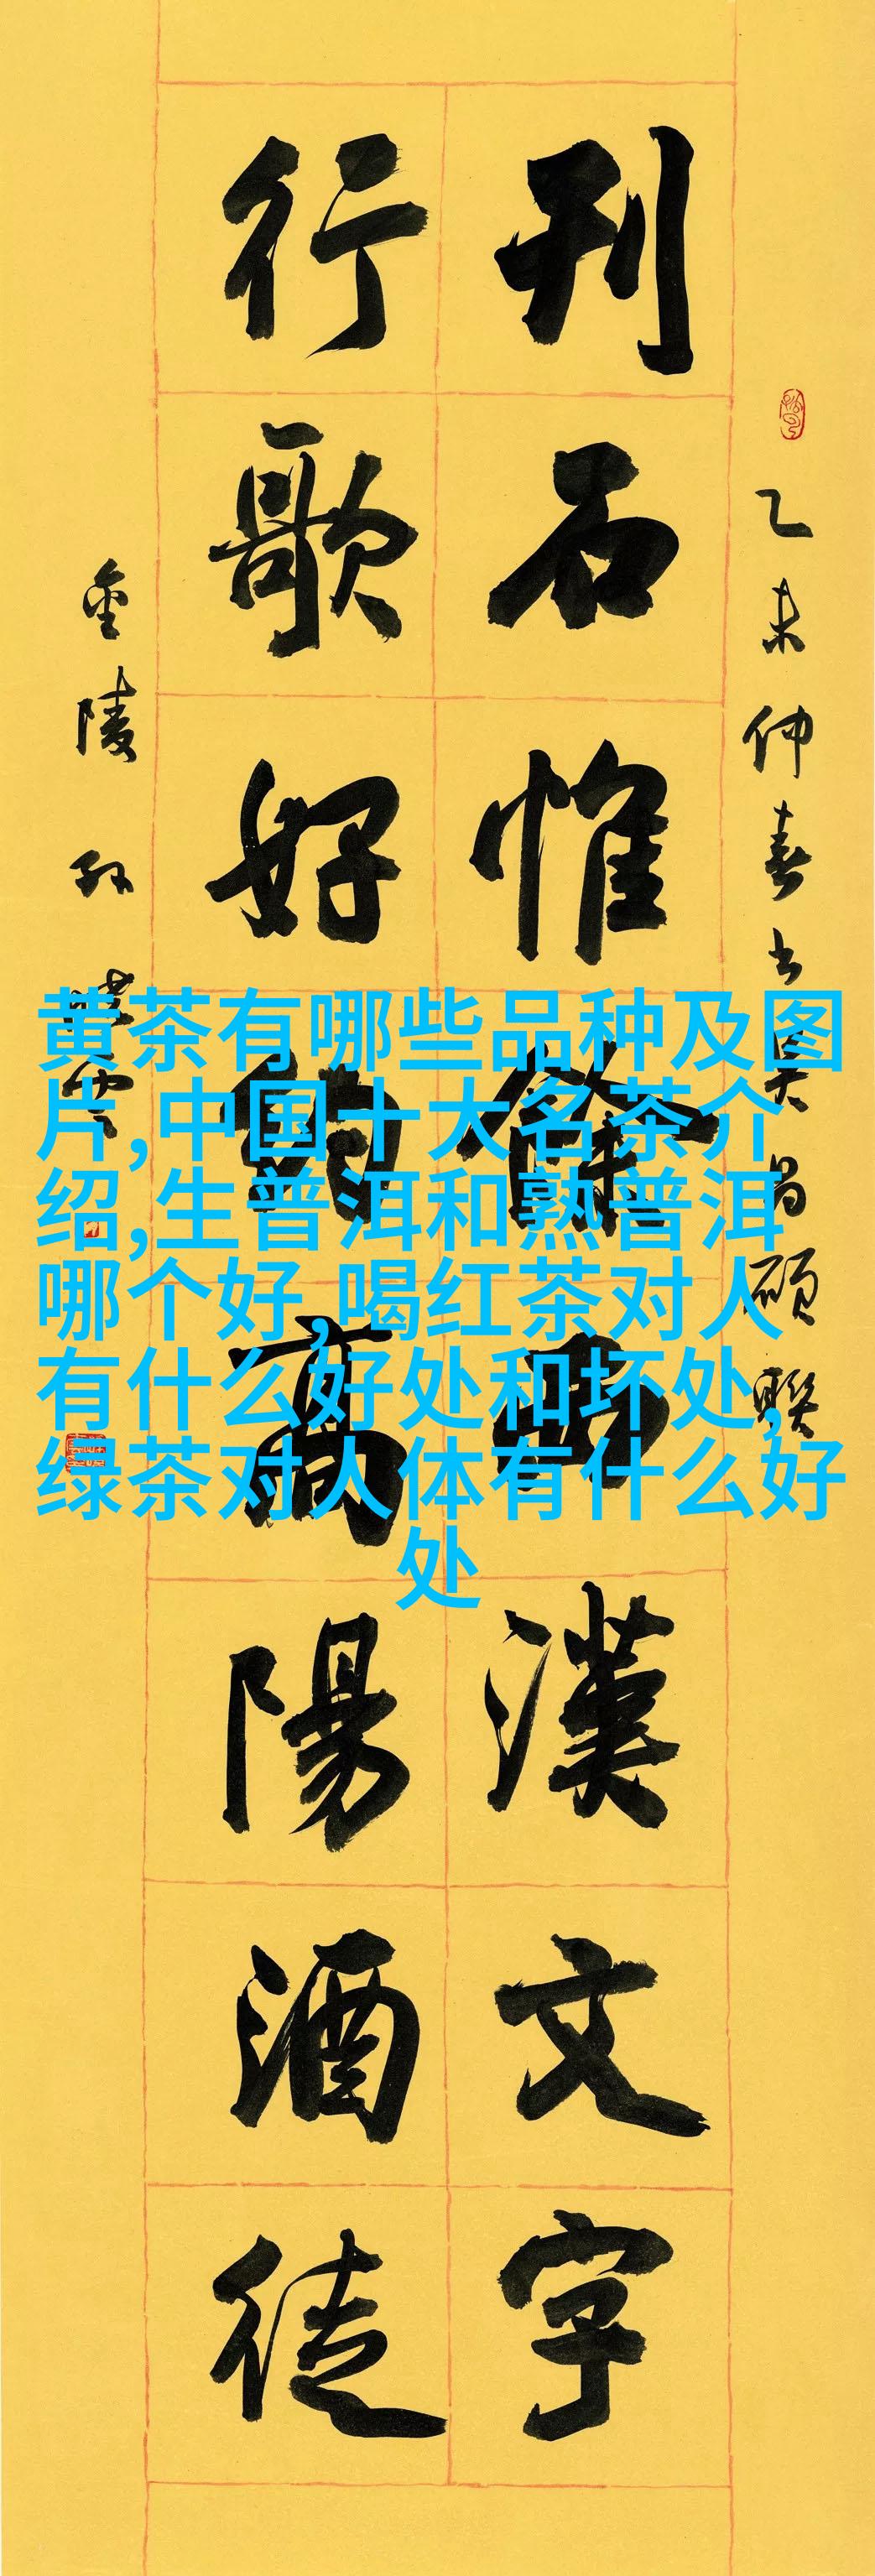 乙未仲春書吴昌碩聯
刊石惟餘西漢文字
行歌好約高陽酒徒
金陵孫曉雲
黄茶有哪些品种及图
片,中国十大名茶介
绍,生普洱和熟普洱
哪个好,喝红茶对人
有什么好处和坏处,
绿茶对人体有什么好
处